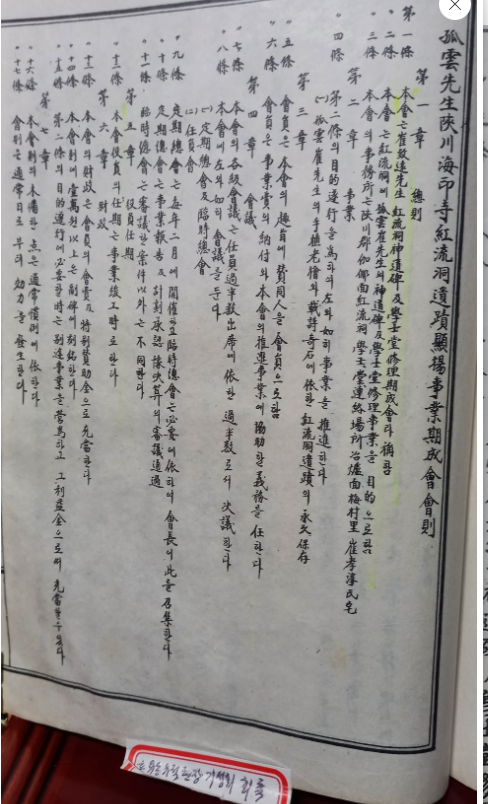 孤雲先生陜川海印寺紅流洞遺蹟顯揚事業期成會會則
第一章 總則
第一條 本會는 崔致遠先生 紅流洞神道碑 및 學士堂修理期成會라 稱함
〃二條 本會는 紅流洞에 孤雲崔先生의 神道碑 및 學士堂修理事業을 目的으로 함
〃三條 本會의 事務所는 陜川郡伽倻面紅流洞 學士堂連絡場所冶爐面梅村里 崔孝淳氏宅
第二章 事業
〃四條 第二條의 目的遂行을 爲하야 左와 如히 事業을 推進한다
(一) 孤雲崔先生의 手植老檜와 載詩奇石에 依한 紅流洞遺蹟의 永久保存
第三章
〃五條 會員은 本會의 趣旨에 賛同人을 會員으로 함
〃六條 會員은 事業賛의 納付와 本會의 推進事業에 協助한 義務를 任한다
第四章 會議
〃七條 本會의 各級會議는 任員過半數出席에 依한 過半數로서 決議한다
〃八條 本會에 左의 如히 會議을 둔다
(一) 定期總會 및 臨時總會
(二) 任員會
〃九條 定期總會는 每年二月에 開催하고 臨時總會는 必要에 依하여 會長이 此를 召集한다
〃十條 定期總會는 事業報告 및 計劃承認 豫決算의 審議通過
〃十一條 臨時總會는 審議한 案件以外는 不同한다
第五章 役員任期
〃十二條 本會役員의 任期는 事業竣工時로 한다
第六章 財政
〃十三條 本會의 財政은 會員의 會費 및 特別賛助金으로 充當한다
〃十四條 本會에 壹萬원以上은 副碑에 刻銘한다
〃十五條 第二條의 目的遂行에 必要한 時는 別途事業을 營爲하고 그 利益金으로써 充當할 수 있다
第七章
〃十六條 本會則의 未備한 点은 通常慣例에 依한다
〃十七條 會則는 通常日로부터 効力을 發生한다